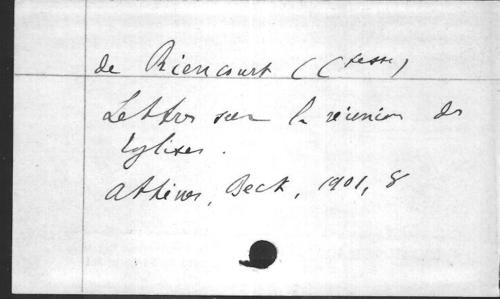 de Riencourt (Ctesse)
Lettres sur la réunion des
Eglises.
Athènes, Beck, 1901, 8